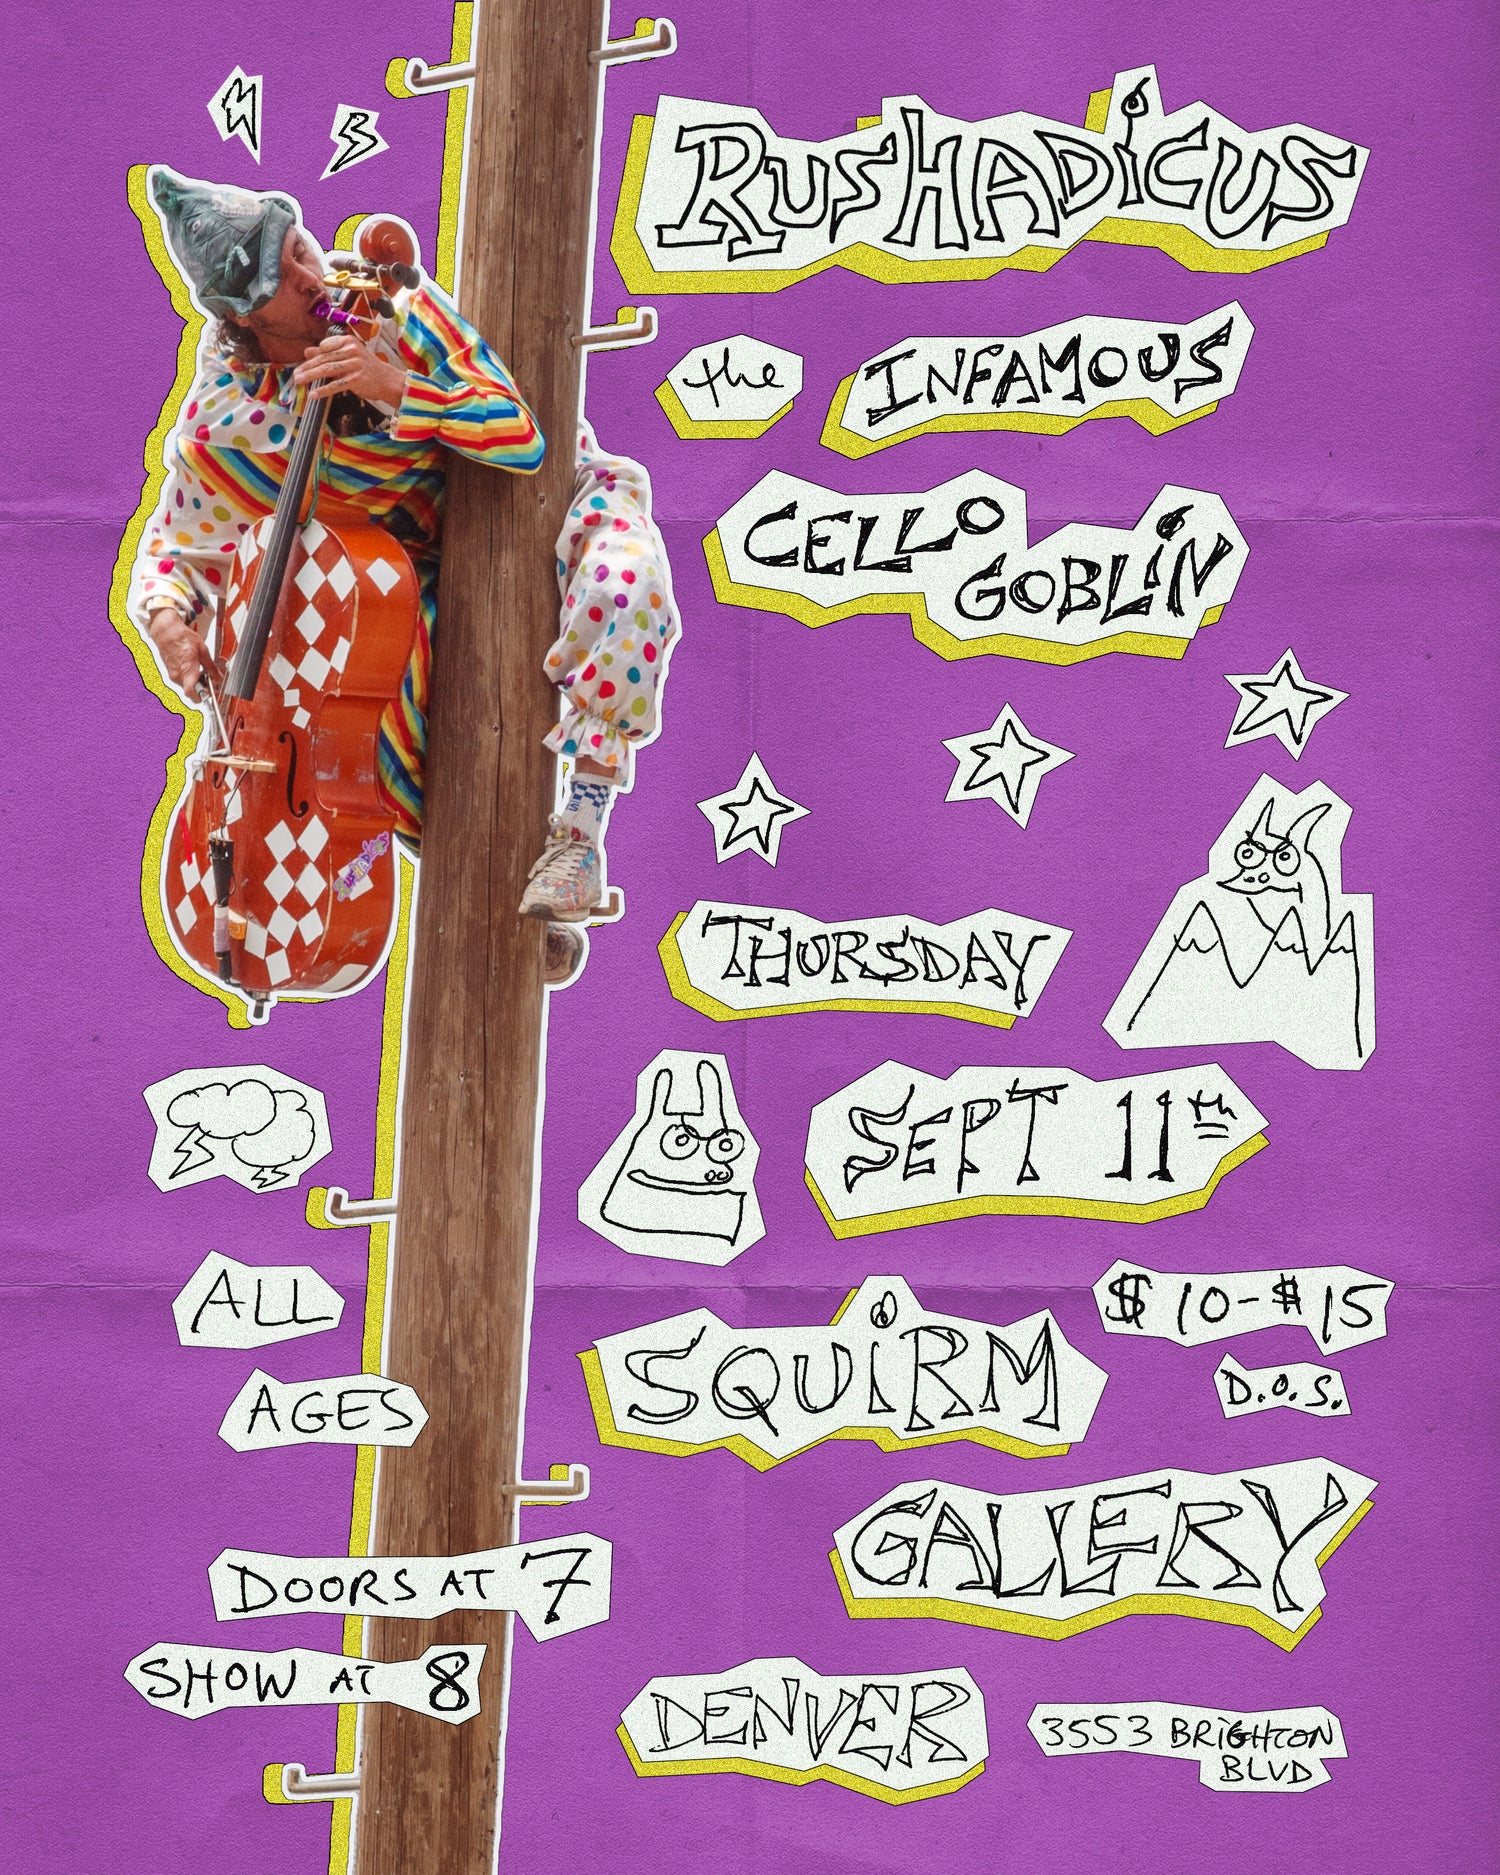 RUSHADiCUS
the INFAMOUS
CELLO
GOBLiN
THURSDAY
SEPT 11th
ALL
AGES
SQUiRM
GALLERY
$10-$15
D.O.S.
DOORS AT 7
SHOW AT 8
DENVER
3553 BRiGHTON
BLVD